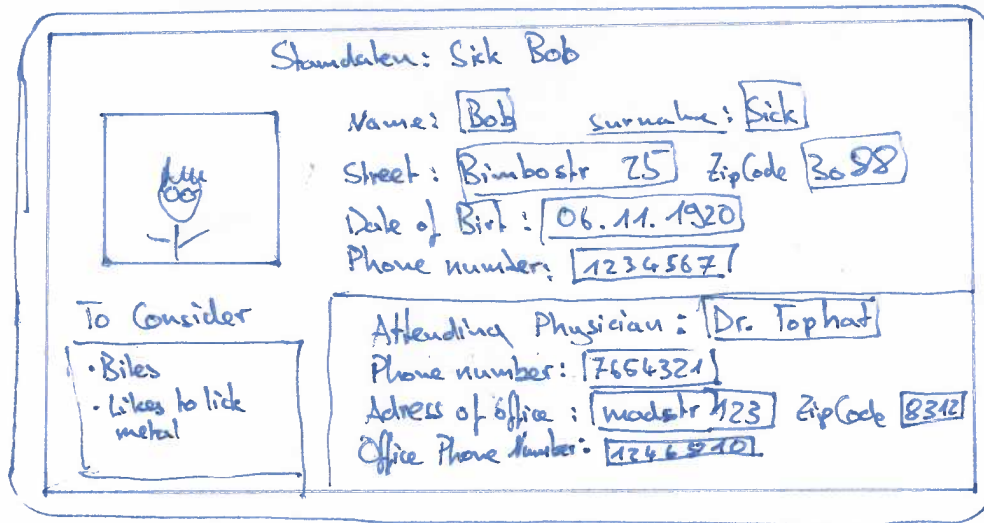 Stamdaten: Sick Bob
Name: Bob surname: Sick
Street: Bimbostr 25 ZipCode 3088
Date of Birt: 06.11.1920
Phone number: 1234567
To Consider
• Bites
• Likes to lick
metal
Attending Physician: Dr. Tophat
Phone number: 7654321
Adress of office: madstr 123 ZipCode 8312
Office Phone Number: